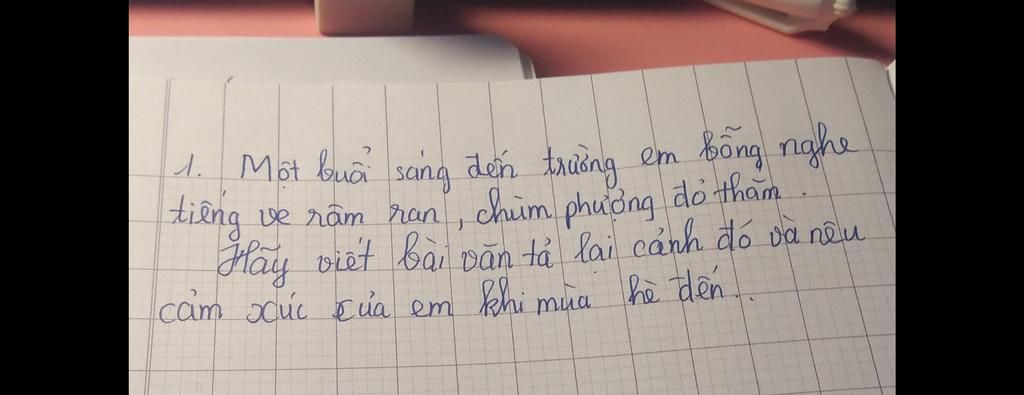 1. Một buổi sáng đến trường em bỗng nghe
tiếng ve râm ran, chùm phượng đỏ thắm.
Hãy viết bài văn tả lại cảnh đó và nêu
cảm xúc của em khi mùa hè đến..